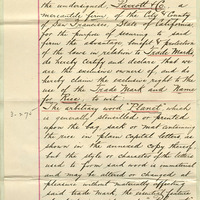 the undersigned, Parrott & Co. a
mercantile firm of the City & County
of San Francisco, State of California
for the purpose of securing to said
firm the advantage, benefit & protection
of the above in relation to Trade Marks
do hereby certify and declare that we
are the exclusive owners of, and do
hereby claim the exclusive right to the
use of the Trade Mark and Name
for Rice to wit
The arbitrary word "Planet" which
is generally stencilled or printed
upon the bag sack or mat containing
the rice in plain Capital letters as
shown on the annexed copy thereof,
but the style or character of the letters
used to form said word is immaterial
and may be altered or changed at
pleasure without materially affecting
said trade mark, the essential feature